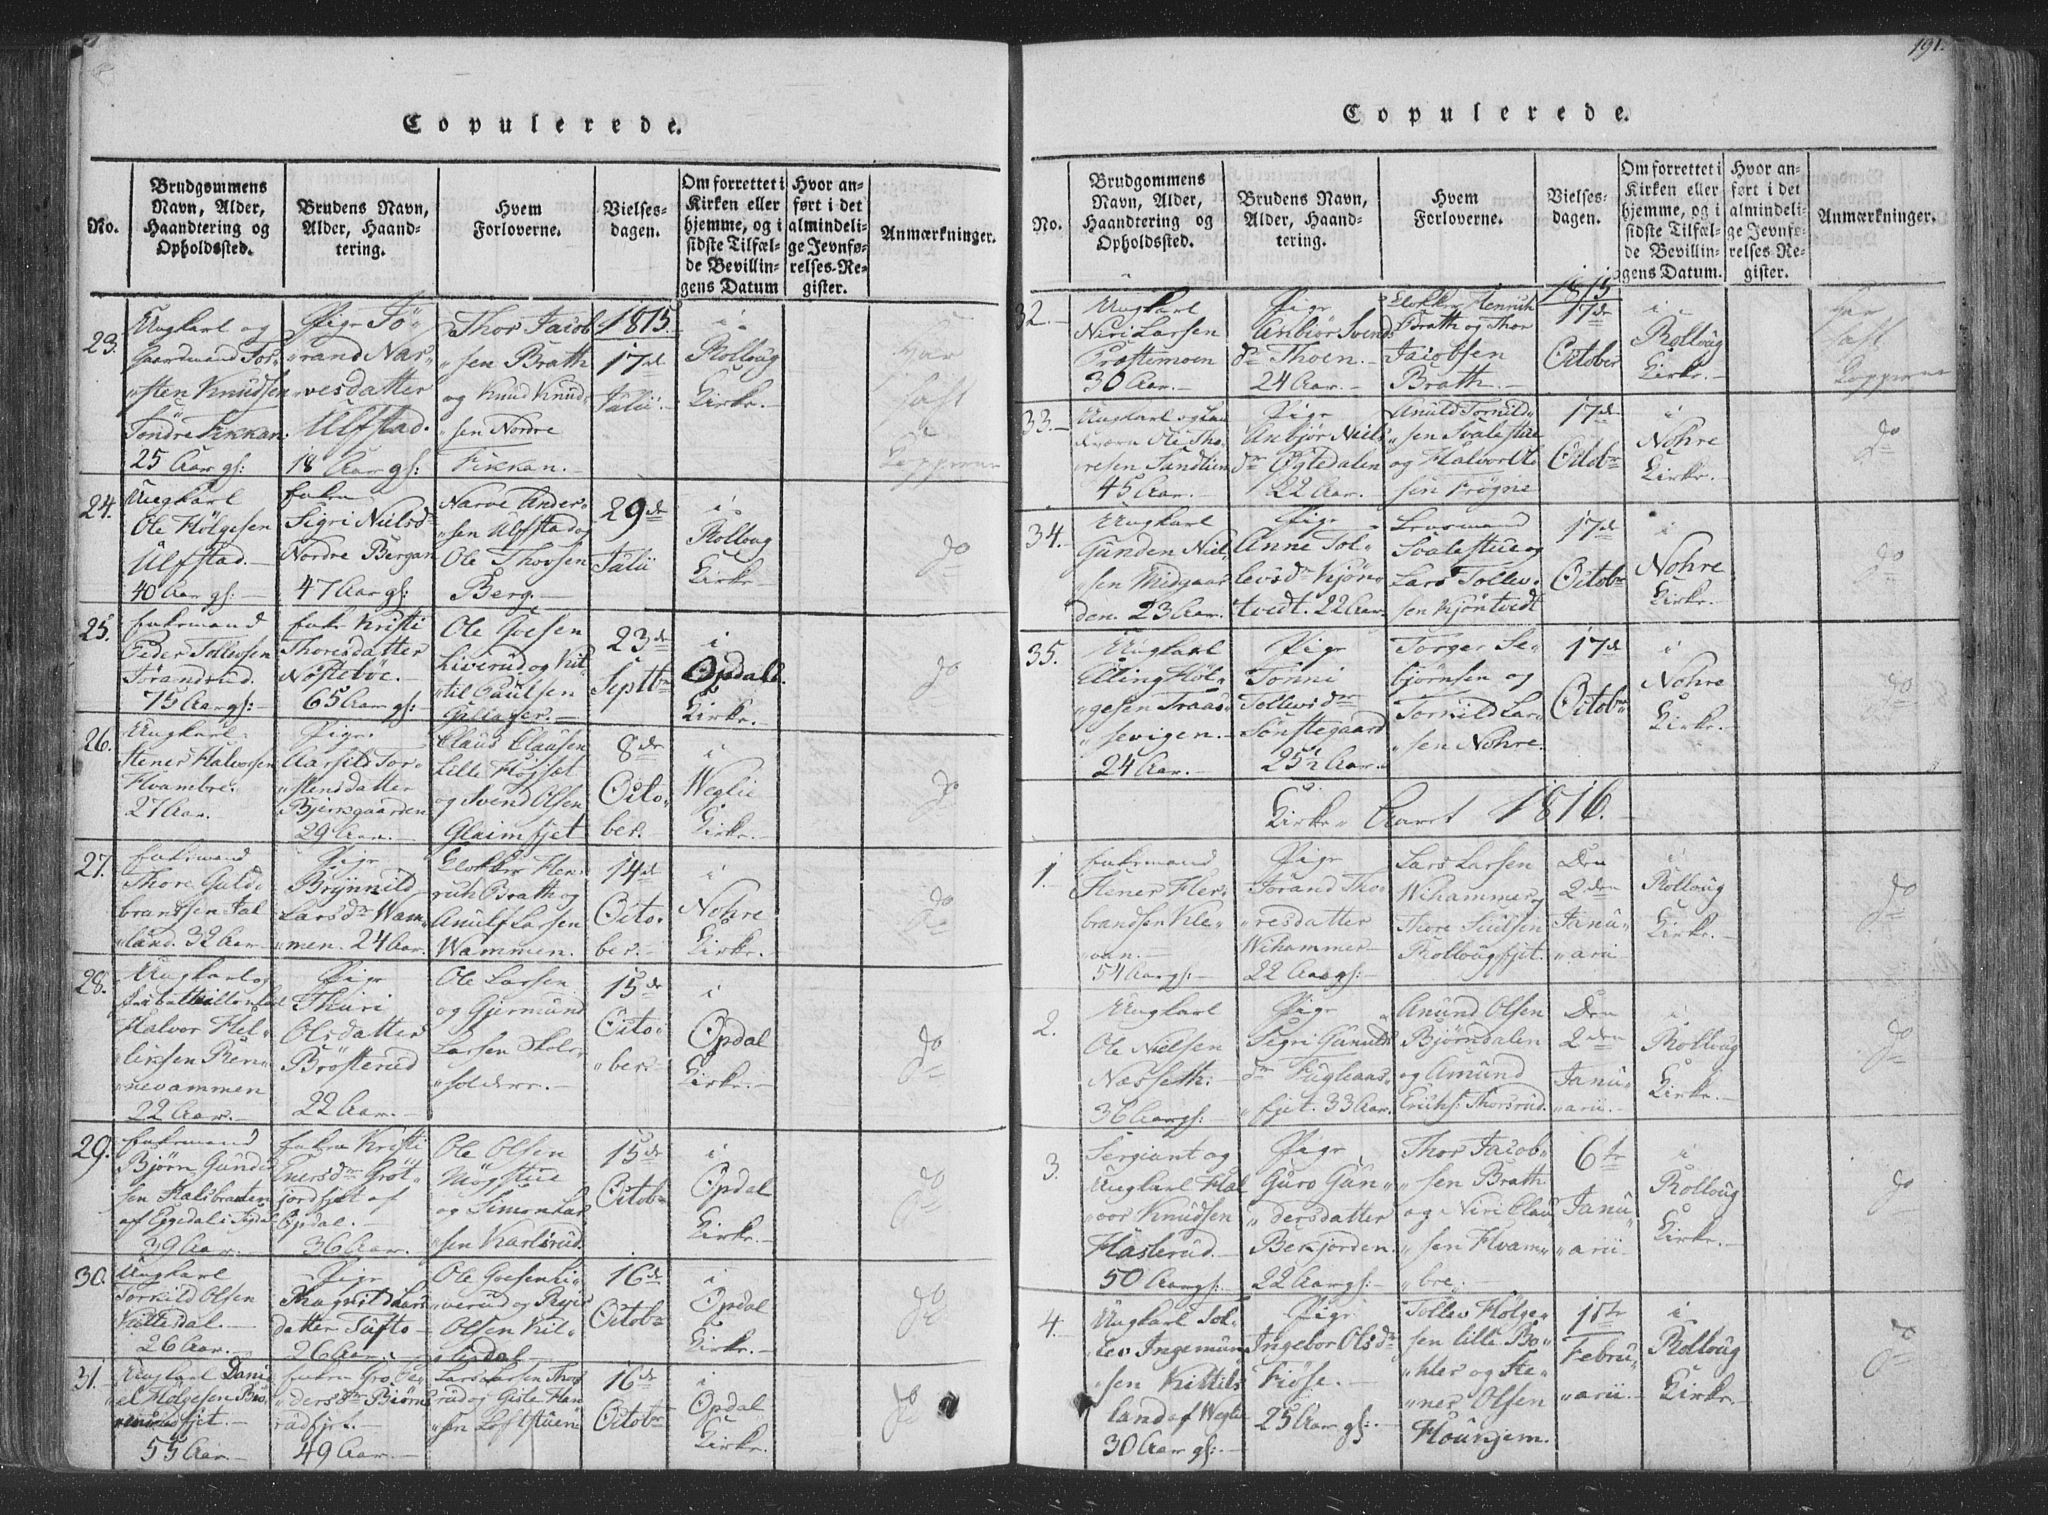 Copulerede.
No.
Brudgommens Navn, Alder, Haandtering og Opholdssted.
Brudens Navn, Alder, Haandtering.
Hvem Forloverne.
Vielsesdagen.
Om forrettet i Kirken eller hjemme, og i sidste Tilfælde Bevillingens Datum
Hvor anført i det almindelige Jevnførelses-Register.
Anmærkninger.
23.
Ungkarl og
Gaardmand Tor-
"sten Knudsen
Söndre Fikkan.
25 Aar gs:
Pige Tö-
"rand Nar-
"vesdatter
Ulfstad.
18 Aar gs:
Thor Jacob-
"sen Brath
og Knud Knud-
"sen Nordre
Fikkan.
1815.
17de
Julii
i
Rolloug
Kirke.
har
havt
Kopperne
24.
Ungkarl
Ole Hölgesen
Ulfstad.
40 Aar gs:
Enken
Sigri Nielsd
Nordre Bergan
47 Aar gs:
Narve Ander-
"sen Ulfstad og
Ole Thorsen
Berg.
29de
Julii
i
Rolloug
Kirke.
do
25.
Enkemand
Peder Tollevsen
Törandrud.
75 Aar gs:
Enke Kristi
Thoresdatter
Nösteböe.
65 Aar gs:
Ole Goesen
Liverud og Kit-
"til Paulsen
23de
Septbr
i
Opdal.
Kirke.
do
26.
Ungkarl
Stener Halvorsen
Hvambre.
27 Aar.
Pige
Aasild Tor-
"stensdatter
Bjerkgaarden
29 Aar.
Claus Clausen
Lille Höjset
og Svend Olsen
Glaimsjet
8de
Octo-
ber.
i
Weglie
Kirke.
do
27.
Enkemand
Thore Guld-
brandsen Jal-
"land. 32 Aar
Pige
Brynnild
Larsdr Wam-
"men. 24 Aar.
Klokker Hen-
rich Brath og
Anulf Larsen
Wammen.
14de
Octo-
ber.
i
Nohre
Kirke.
do
28.
Ungkarl og
Halvor Hel-
"liksen Ren-
"nevammen
22 Aar.
Pige
Thuri
Olsdatter
Brösterud
22 Aar.
Ole Larsen
og Gjermund
Larsen Skols-
"folderne.
15de
Octo-
"ber.
i
Opdal
Kirke.
do
29.
Enkemand
Björn Gunde
sen Halsbraaten
af Eggedal i Sigdal
39 Aar.
Enken Kristi
Enersdr Gröt-
jordfjet af
Opdal.
36 Aar.
Ole Olsen
Mögstue
og Simon Lar
"sen Karlsrud.
15de
Octobr
i
Opdal
Kirke.
do
30.
Ungkarl
Torkild Olsen
Killedal.
26 Aar.
Pige
Ragnild Lars
datter Tufto
26 Aar.
Ole Goesen Li-
"verud og Rejer
Olsen Kil-
"ledal.
16de
Octobr
i
Opdal
Kirke.
do
31.
Ungkarl Dani
el Hölgesen
55 Aar
Enken Gro Pe-
"dersdr Biörne
rudfjet.
49 Aar.
Lars Larsen Thor
rud og Gisle Han
"sen Loftstuen
16de
Octobr
i
Opdal
Kirke.
do
191.
Copulerede.
No.
Brudgommens Navn, Alder, Haandtering og Opholdssted.
Brudens Navn, Alder, Haandtering.
Hvem Forloverne.
Vielsesdagen.
Om forrettet i Kirken eller hjemme, og i sidste Tilfælde Bevillingens Datum.
Hvor anført i det almindelige Jevnførelses-Register.
Anmærkninger.
32.
Ungkarl
Niri Larsen
Prestemoen
30 Aar.
Pige
Anbiör Svends
dr Thoen.
24 Aar.
Klokker Henrich
Brath og Thor
Jacobsen
Brath.
1815
17de
October
i
Rolloug
Kirke.
har
havt
Kopperne
33.
Ungkarl og Lan
Ole Tho-
resen Sandlien
45 Aar.
Pige
Anbjör Niels
dr Ögtedalen
22 Aar.
Anuld Torkild-
"sen Svalestue
og Halvor Ol
sen Frögne
17de
Octobr
i
Nohre
Kirke.
do
34.
Ungkarl
Gunden Niel-
"sen Midgaar
den. 23 Aar.
Pige
Anne Tol-
levsdr Kjön-
tvedt. 22 Aar.
Svalestue og
Lars Tollev-
sen Kjöntvedt
17de
Octobr
i
Nohre
Kirke.
do
35.
Ungkarl
Elling Höl-
"gesen Traas-
"sevigen.
24 Aar.
Pige
Tonni
Tollevsdr
Sönstegaard
25½ Aar.
Torger Se-
björnsen og
Torkild Lar-
"sen Nohre.
17de
Octobr
i
Nohre
Kirke.
do
Kirke-Aaret 1816.
1.
Enkemand
Stener Her-
brandsen Kle-
"ven.
54 Aar gs:
Pige
Torand Tho-
"resdatter
Wihammer
22 Aar gs:
Lars Larsen
Wihammer og
Thore Juelsen
Rollougfjet.
Den
2den
Janu-
"arii
i
Rolloug
Kirke.
do
2.
Ungkarl
Ole Nielsen
Næsseth.
36 Aar gs:
Pige
Sigri Gunulfs
dr Fugleaas-
"fjet. 33 Aar.
Anund Olsen
Björndalen
og Amund
Erichs: Thorsrud.
Den
2den
Janu-
"arii.
i
Rolloug
Kirke.
do
3.
Sergiant og
Ungkarl Hal
vor Knudsen
Haslerud.
50 Aar gs:
Pige
Guro Gun-
"dersdatter
Bekjorden.
22 Aar gs:
Thor Jacob-
"sen Brath
og Niri Clau
"sen Hvam-
"bre.
6te
Janu
"arii
i
Rolloug
Kirke.
do
4.
Ungkarl Tol-
lev Ingemun
"sen Kittils
land af Wegli
30 Aar gs:
Pige
Ingebor Olsdr
Fiöse.
25 Aar gs:
Tollev Hölge-
sen lille Bö-
"hler og Ste-
"ner Olsen
Hounjem.
1ste
Febru
"arii.
i
Rolloug
Kirke.
do